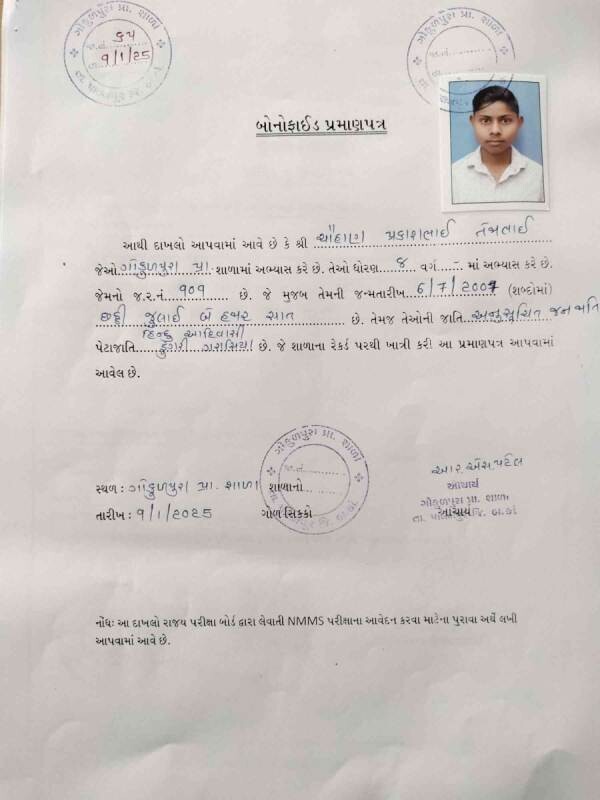 ગોકુળપુરા પ્રા. શાળા
જા.નં. ૬૫
તા. ૧/૧/૨૫
ગોકુળપુરા પ્રા. શાળા
બોનોફાઈડ પ્રમાણપત્ર
આથી દાખલો આપવામાં આવે છે કે શ્રી ચૌહાણ પ્રકાશભાઈ
જેઓ ગોકુળપુરા પ્રા. શાળામાં અભ્યાસ કરે છે. તેઓ ધોરણ ૮ વર્ગ - માં અભ્યાસ કરે છે.
જેમનો જ.ર.નં. ૧૦૧ છે. જે મુજબ તેમની જન્મતારીખ ૬/૭/૨૦૦૭ (શબ્દોમાં)
છઠ્ઠી જુલાઈ બે હજાર સાત છે. તેમજ તેઓની જાતિ અનુસૂચિત જનજાતિ
હિન્દુ આદિવાસી
પેટાજાતિ ડુંગરી ગરાસિયા છે. જે શાળાના રેકર્ડ પરથી ખાત્રી કરી આ પ્રમાણપત્ર આપવામાં
આવેલ છે.
ગોકુળપુરા પ્રા. શાળા
જા.નં.
આર.એસ.પટેલ
આચાર્ય
સ્થળ : ગોકુળપુરા પ્રા. શાળા શાળાનો
ગોકુળપુરા પ્રા. શાળા
આચાર્ય
તારીખ : ૧/૧/૨૦૨૫ ગોળ સિક્કો
નોંધઃ આ દાખલો રાજ્ય પરીક્ષા બોર્ડ દ્વારા લેવાતી NMMS પરીક્ષાના આવેદન કરવા માટેના પુરાવા અર્થે લખી
આપવામાં આવે છે.